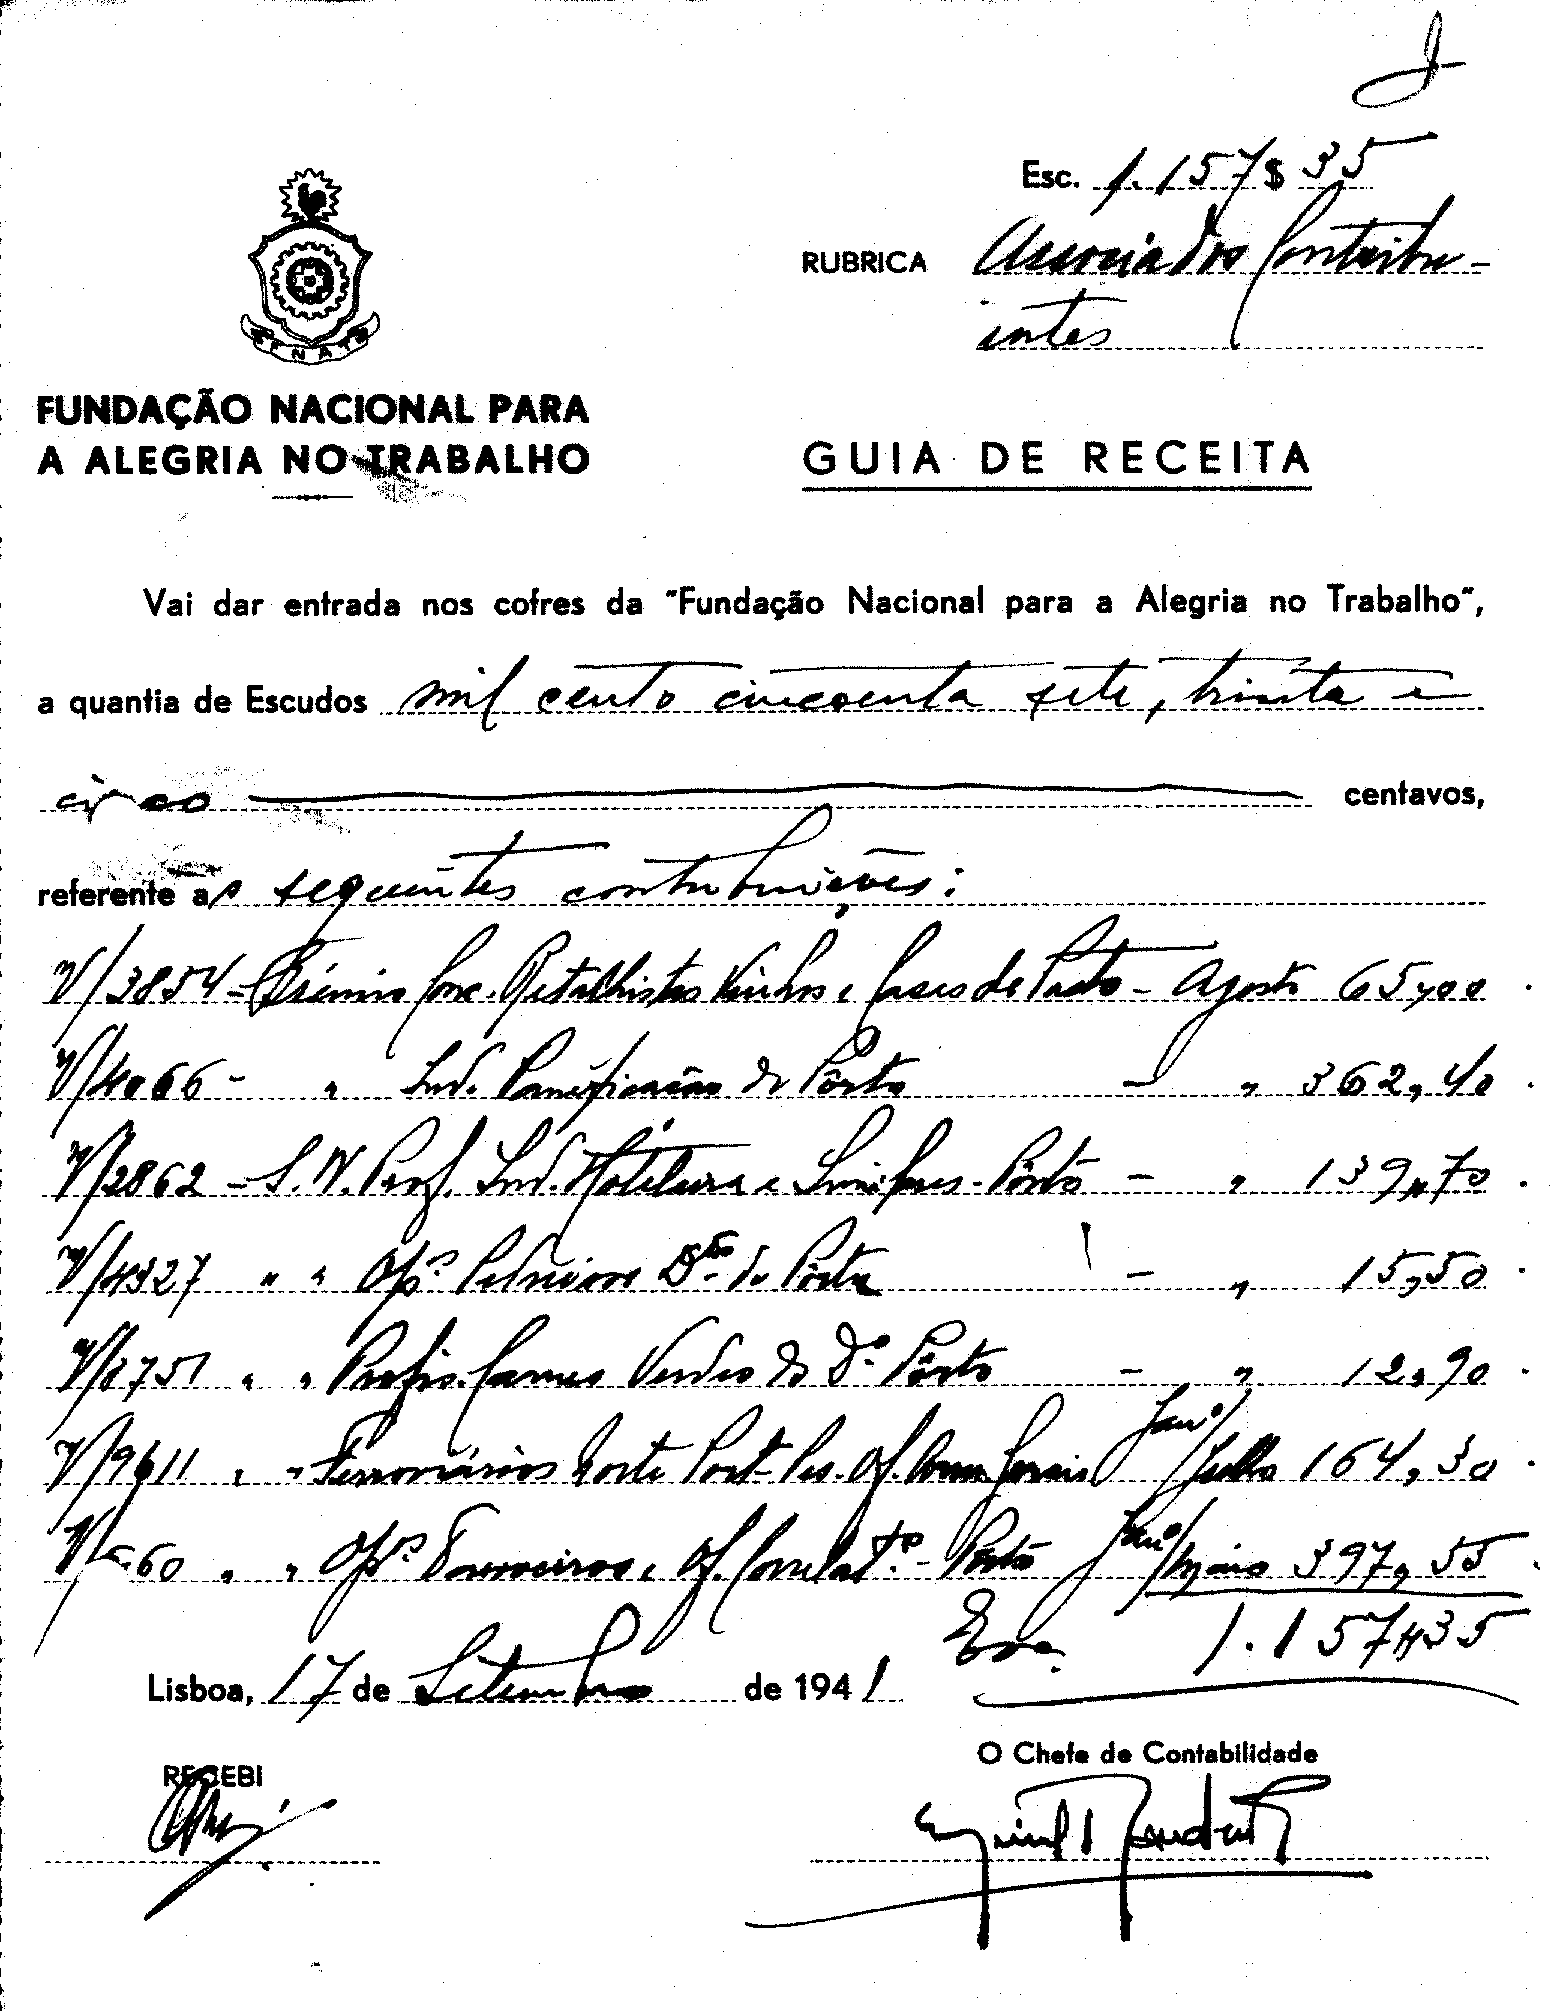 Esc. 1.157$35
RUBRICA Associados Contribu-
intes
FNAT
FUNDAÇÃO NACIONAL PARA
A ALEGRIA NO TRABALHO
GUIA DE RECEITA
Vai dar entrada nos cofres da "Fundação Nacional para a Alegria no Trabalho",
a quantia de Escudos mil cento cincoenta sete, trinta e
cinco centavos,
referente as seguintes contribuições:
V/3854 - Grémio Conc. Retalhistas Vinhos e Casas de Pasto - Agosto 65,00
V/4066 - " Ind. Panificação do Pôrto - " 362,40
V/2862 - S. N. Prof. Ind. Hoteleira e Similares - Pôrto - " 139,70
V/4327 " " Opº. Pedreiros Dto. do Pôrto - " 15,50
V/2751 " " Profis. Carnes Verdes do Dº. Pôrto - " 12,90
V/9611 " " Ferroviários Norte Port. Pes. Of. Arm. Gerais Janº/Julho 164,30
60 " " Opº. e Of. Correlatº. - Pôrto Janº/Maio 397,55
Esc. 1.157$35
Lisboa, 17 de Setembro de 1941
O Chefe de Contabilidade
RECEBI